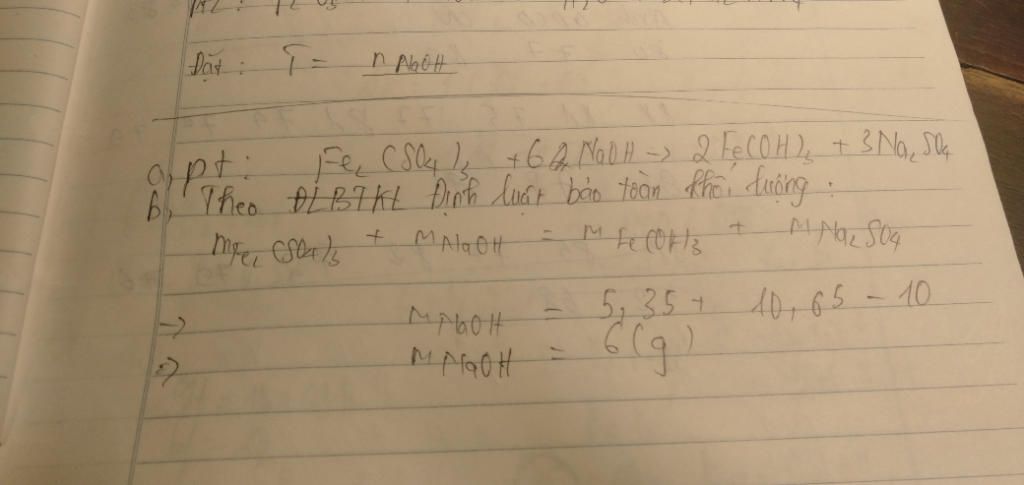 Đặt : T = nNaOH
a, pt : Fe2(SO4)3 + 6 NaOH → 2Fe(OH)3 + 3Na2SO4
b, Theo ĐLBTKL Định luật bảo toàn khối lượng :
mFe2(SO4)3 + mNaOH = mFe(OH)3 + mNa2SO4
→ mNaOH = 5,35 + 10,65 - 10
⇒ mNaOH = 6(g)